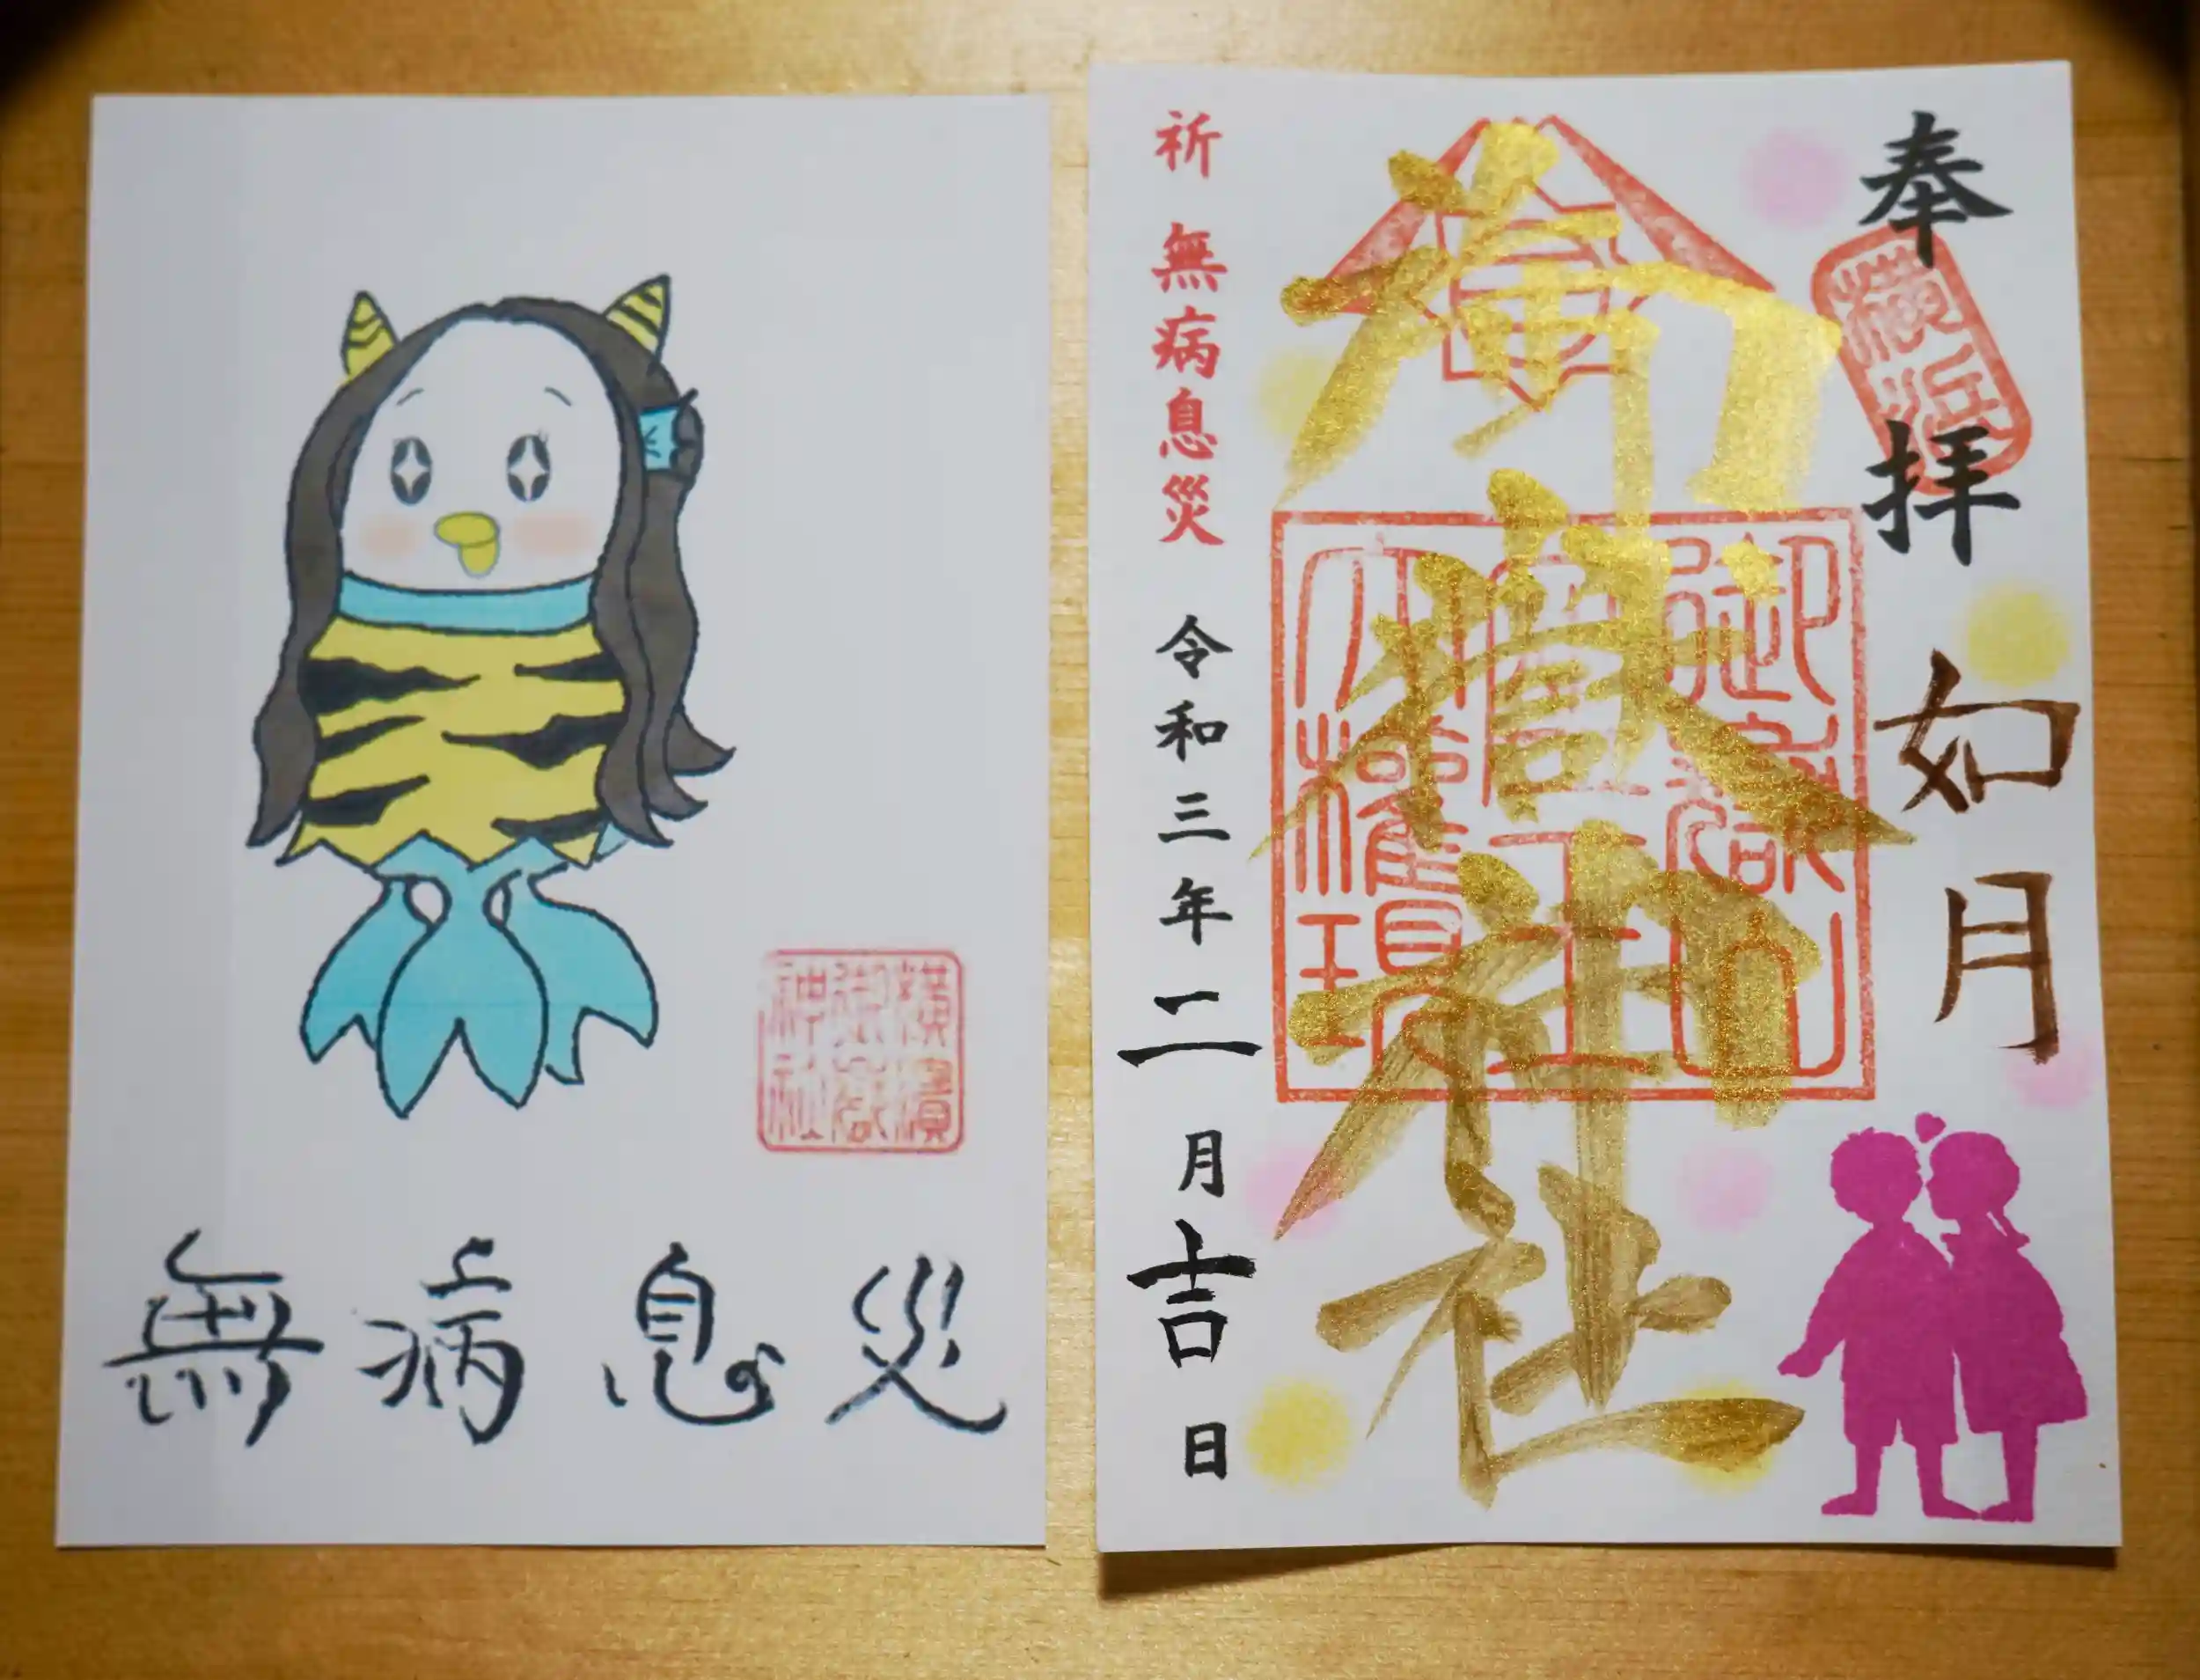 無病息災
横濱
御嶽
神社
奉拝
如月
横浜
御嶽神社
御嶽山
大権現
祈 無病息災
令和三年二月吉日